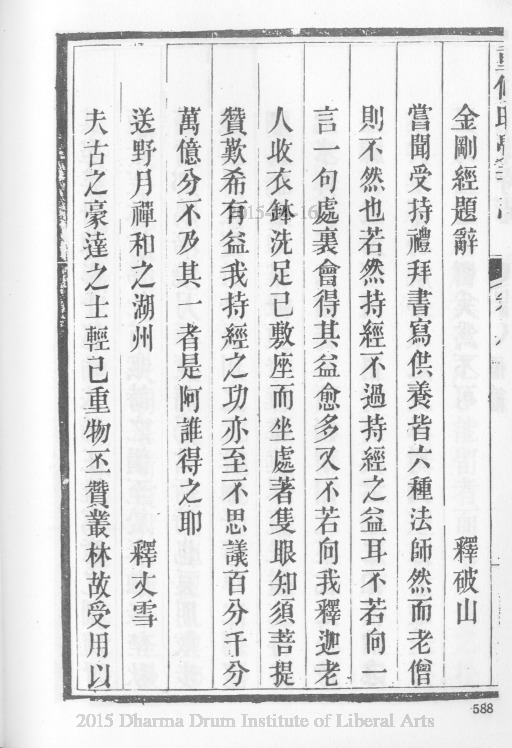 金剛經題辭　釋破山
嘗聞受持禮拜書寫供養皆六種法師然而老僧
則不然也若然持經不過持經之益耳不若向一
言一句處裏會得其益愈多又不若向我釋迦老
人收衣鉢洗足已敷座而坐處著隻眼知須菩提
贊歎希有益我持經之功亦至不思議百分千分
萬億分不及其一者是阿誰得之耶
送野月禪和之湖州　釋丈雪
夫古之豪達之士輕己重物丕贊叢林故受用以
588
2015 Dharma Drum Institute of Liberal Arts